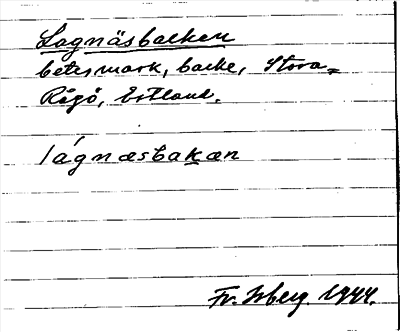 Lagnäsbacken
betesmark, backe, Stora-
Rågö, Estland.
lágnæsbakæn
Fr. Isberg 1944.